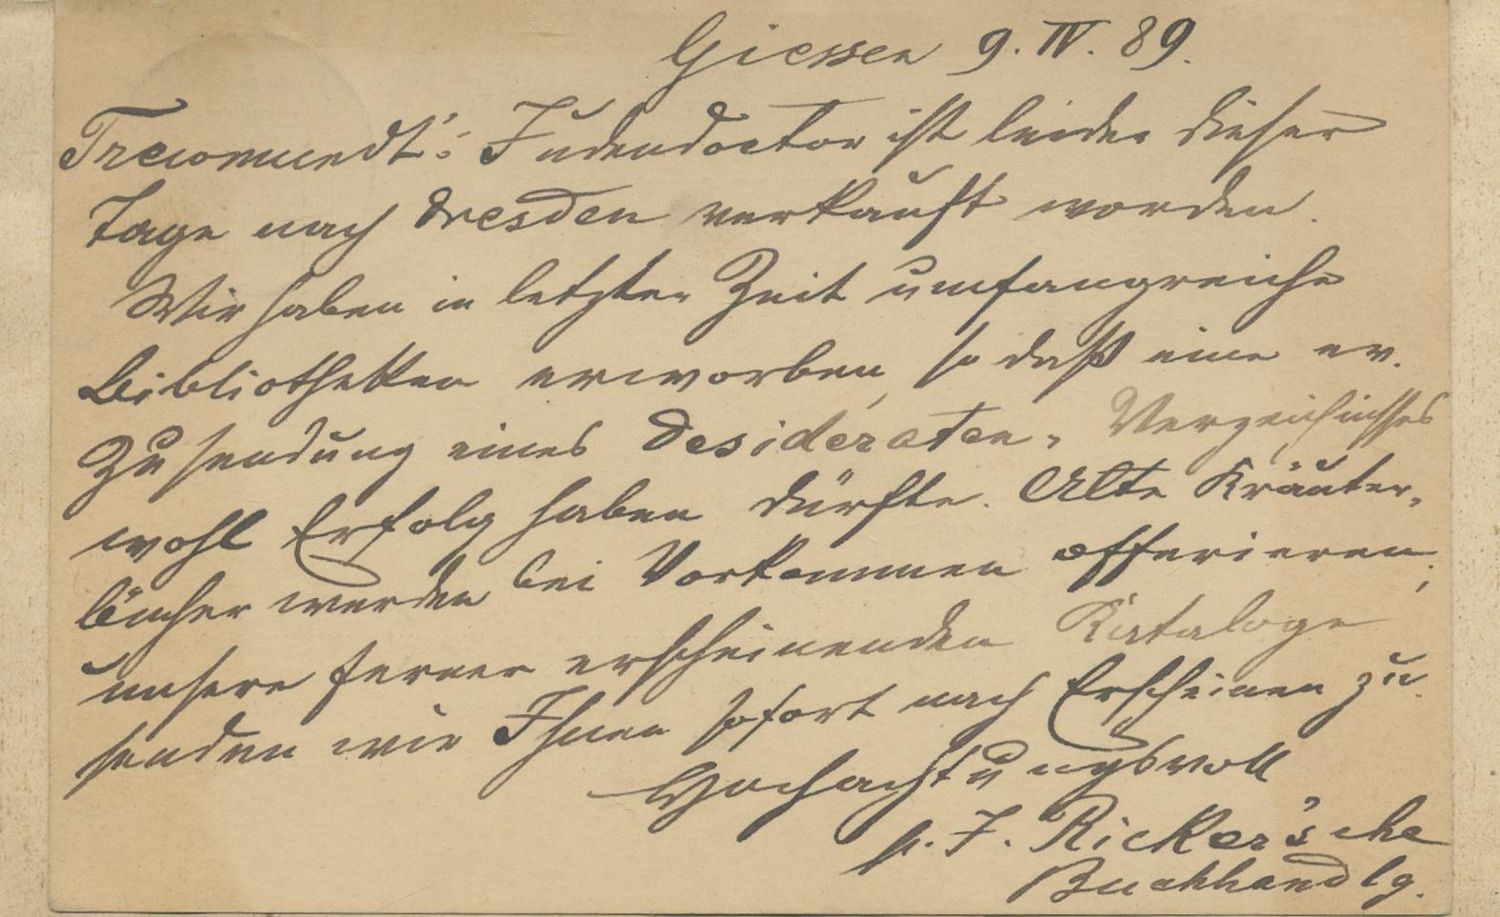 Giessen 9. IV. 89.
Trewmundt's Judendoctor ist leider dieser
Tage nach Dresden verkauft worden.
Wir haben in letzter Zeit umfangreiche
Bibliotheken erworben, so daß eine ev.
Zusendung eines Desideraten-Verzeichnisses
wohl Erfolg haben dürfte. Alte Kräuter-
bücher werden bei Vorkommen offerieren;
unsere ferner erscheinenden Kataloge
senden wir Ihnen sofort nach Erscheinen zu.
Hochachtungsvoll
p. J. Ricker'sche
Buchhandlg.